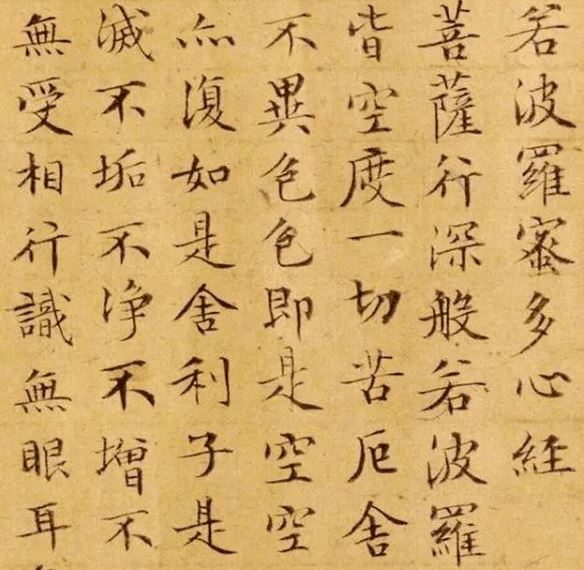 若波羅蜜多心経
菩薩行深般若波羅
皆空度一切苦厄舍
不異色色即是空空
亦復如是舍利子是
滅不垢不淨不增不
無受相行識無眼耳